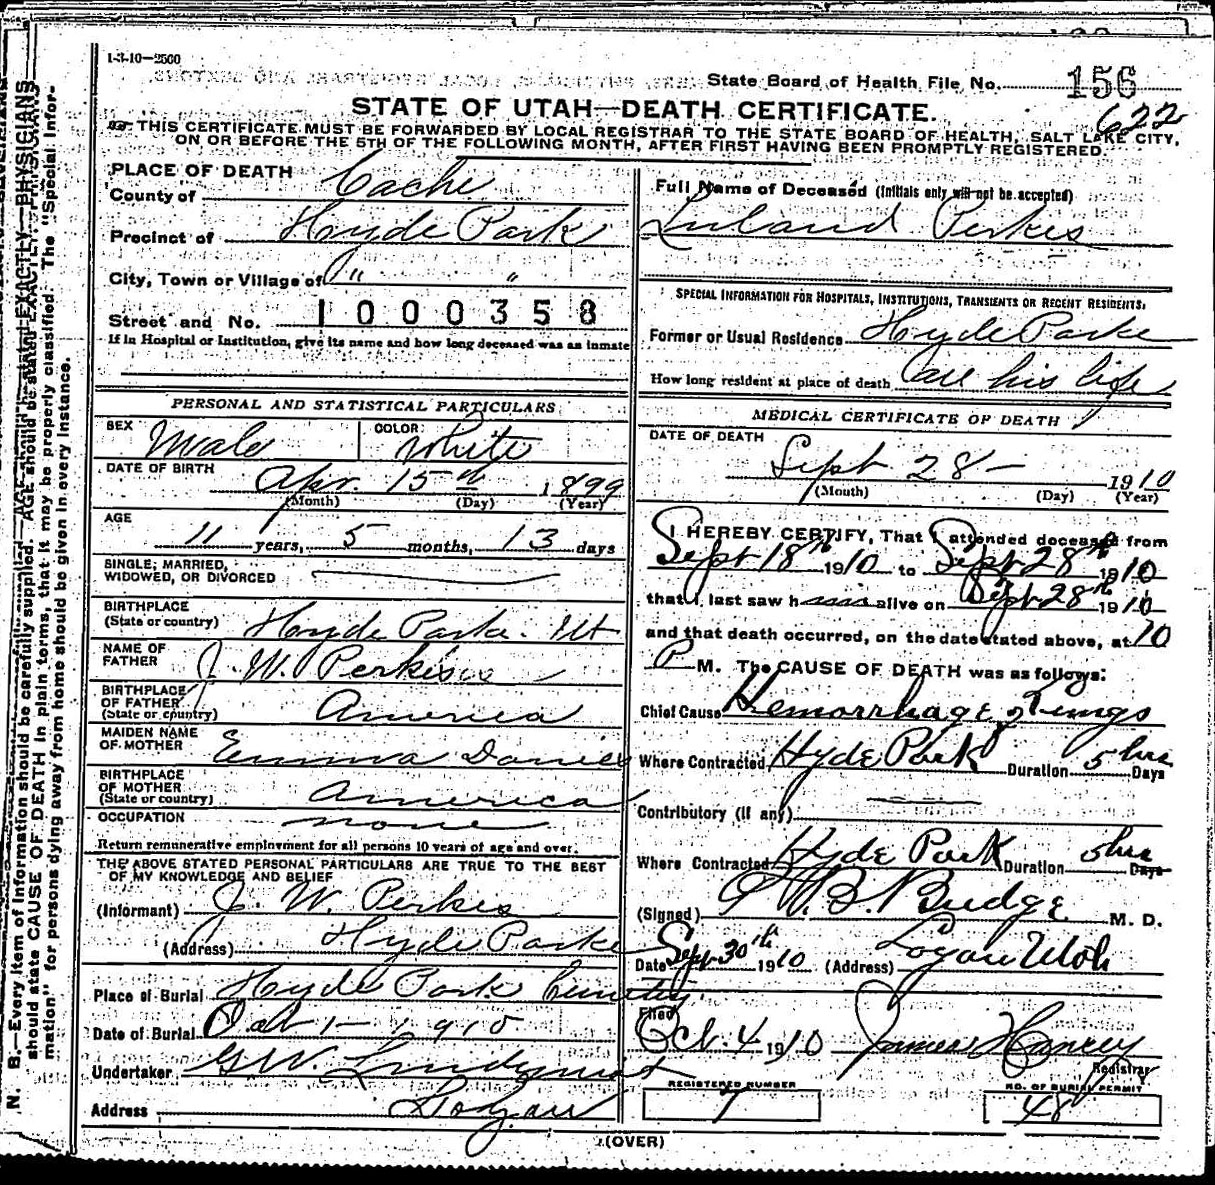 1-3-10—2500
State Board of Health File No. 156
622
STATE OF UTAH—DEATH CERTIFICATE.
THIS CERTIFICATE MUST BE FORWARDED BY LOCAL REGISTRAR TO THE STATE BOARD OF HEALTH, SALT LAKE CITY,
ON OR BEFORE THE 5TH OF THE FOLLOWING MONTH, AFTER FIRST HAVING BEEN PROMPTLY REGISTERED.
PLACE OF DEATH
County of Cache
Precinct of Hyde Park
City, Town or Village of " "
Street and No. 1000358
If in Hospital or Institution, give its name and how long deceased was an inmate
PERSONAL AND STATISTICAL PARTICULARS
SEX Male COLOR White
DATE OF BIRTH Apr. 15th 1899
(Month) (Day) (Year)
AGE 11 years, 5 months, 13 days
SINGLE, MARRIED,
WIDOWED, OR DIVORCED
BIRTHPLACE
(State or country) Hyde Park. Ut
NAME OF
FATHER J. W. Perkes
BIRTHPLACE
OF FATHER
(State or country) America
MAIDEN NAME
OF MOTHER Emma Daines
BIRTHPLACE
OF MOTHER
(State or country) America
OCCUPATION none
Return remunerative employment for all persons 10 years of age and over.
THE ABOVE STATED PERSONAL PARTICULARS ARE TRUE TO THE BEST
OF MY KNOWLEDGE AND BELIEF
(Informant) J. W. Perkes
(Address) Hyde Park
Place of Burial Hyde Park Cemetery
Date of Burial Oct 1— 1910
Undertaker G W. Lindquist
Address Logan
Full Name of Deceased (Initials only will not be accepted)
Leland Perkes
SPECIAL INFORMATION FOR HOSPITALS, INSTITUTIONS, TRANSIENTS OR RECENT RESIDENTS.
Former or Usual Residence Hyde Park
How long resident at place of death all his life
MEDICAL CERTIFICATE OF DEATH
DATE OF DEATH
Sept 28— 1910
(Month) (Day) (Year)
I HEREBY CERTIFY, That I attended deceased from
Sept 18th 1910 to Sept 28th 1910
that I last saw him alive on Sept 28th 1910
and that death occurred, on the date stated above, at 10
P M. The CAUSE OF DEATH was as follows:
Chief Cause Hemorrhage Lungs
Where Contracted Hyde Park Duration 5 hrs Days
Contributory (if any)
Where Contracted Hyde Park Duration 5 hrs Days
(Signed) W. B. Budge M. D.
Date Sept 30th 1910 (Address) Logan Utah
Filed
Oct. 4 1910 James Hancey
Registrar
REGISTERED NUMBER NO. OF BURIAL PERMIT
48
(OVER)
N. B.—Every item of information should be carefully supplied. AGE should be stated EXACTLY. PHYSICIANS
should state CAUSE OF DEATH in plain terms, that it may be properly classified. The "Special Infor-
mation" for persons dying away from home should be given in every instance.